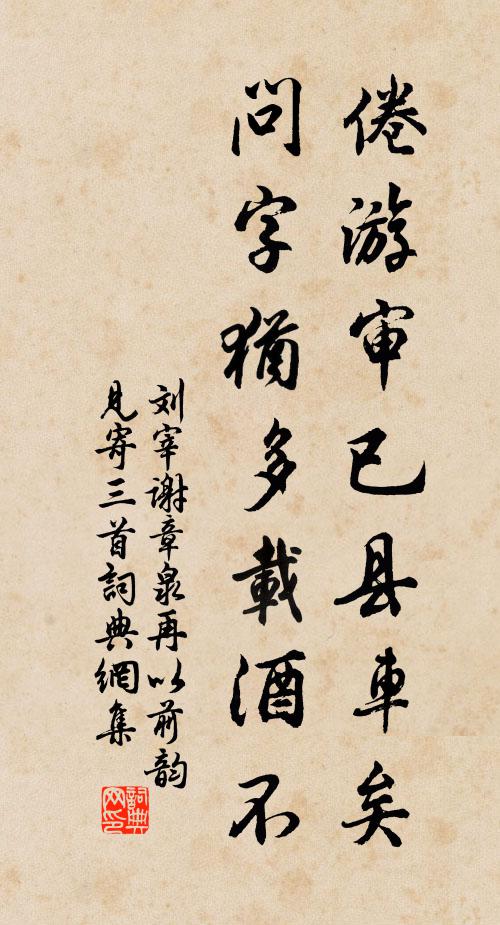 倦游审已县車矣
問字猶多載酒不
刘宰谢章泉再以前韵
見寄三首詞典網集
詞典网印